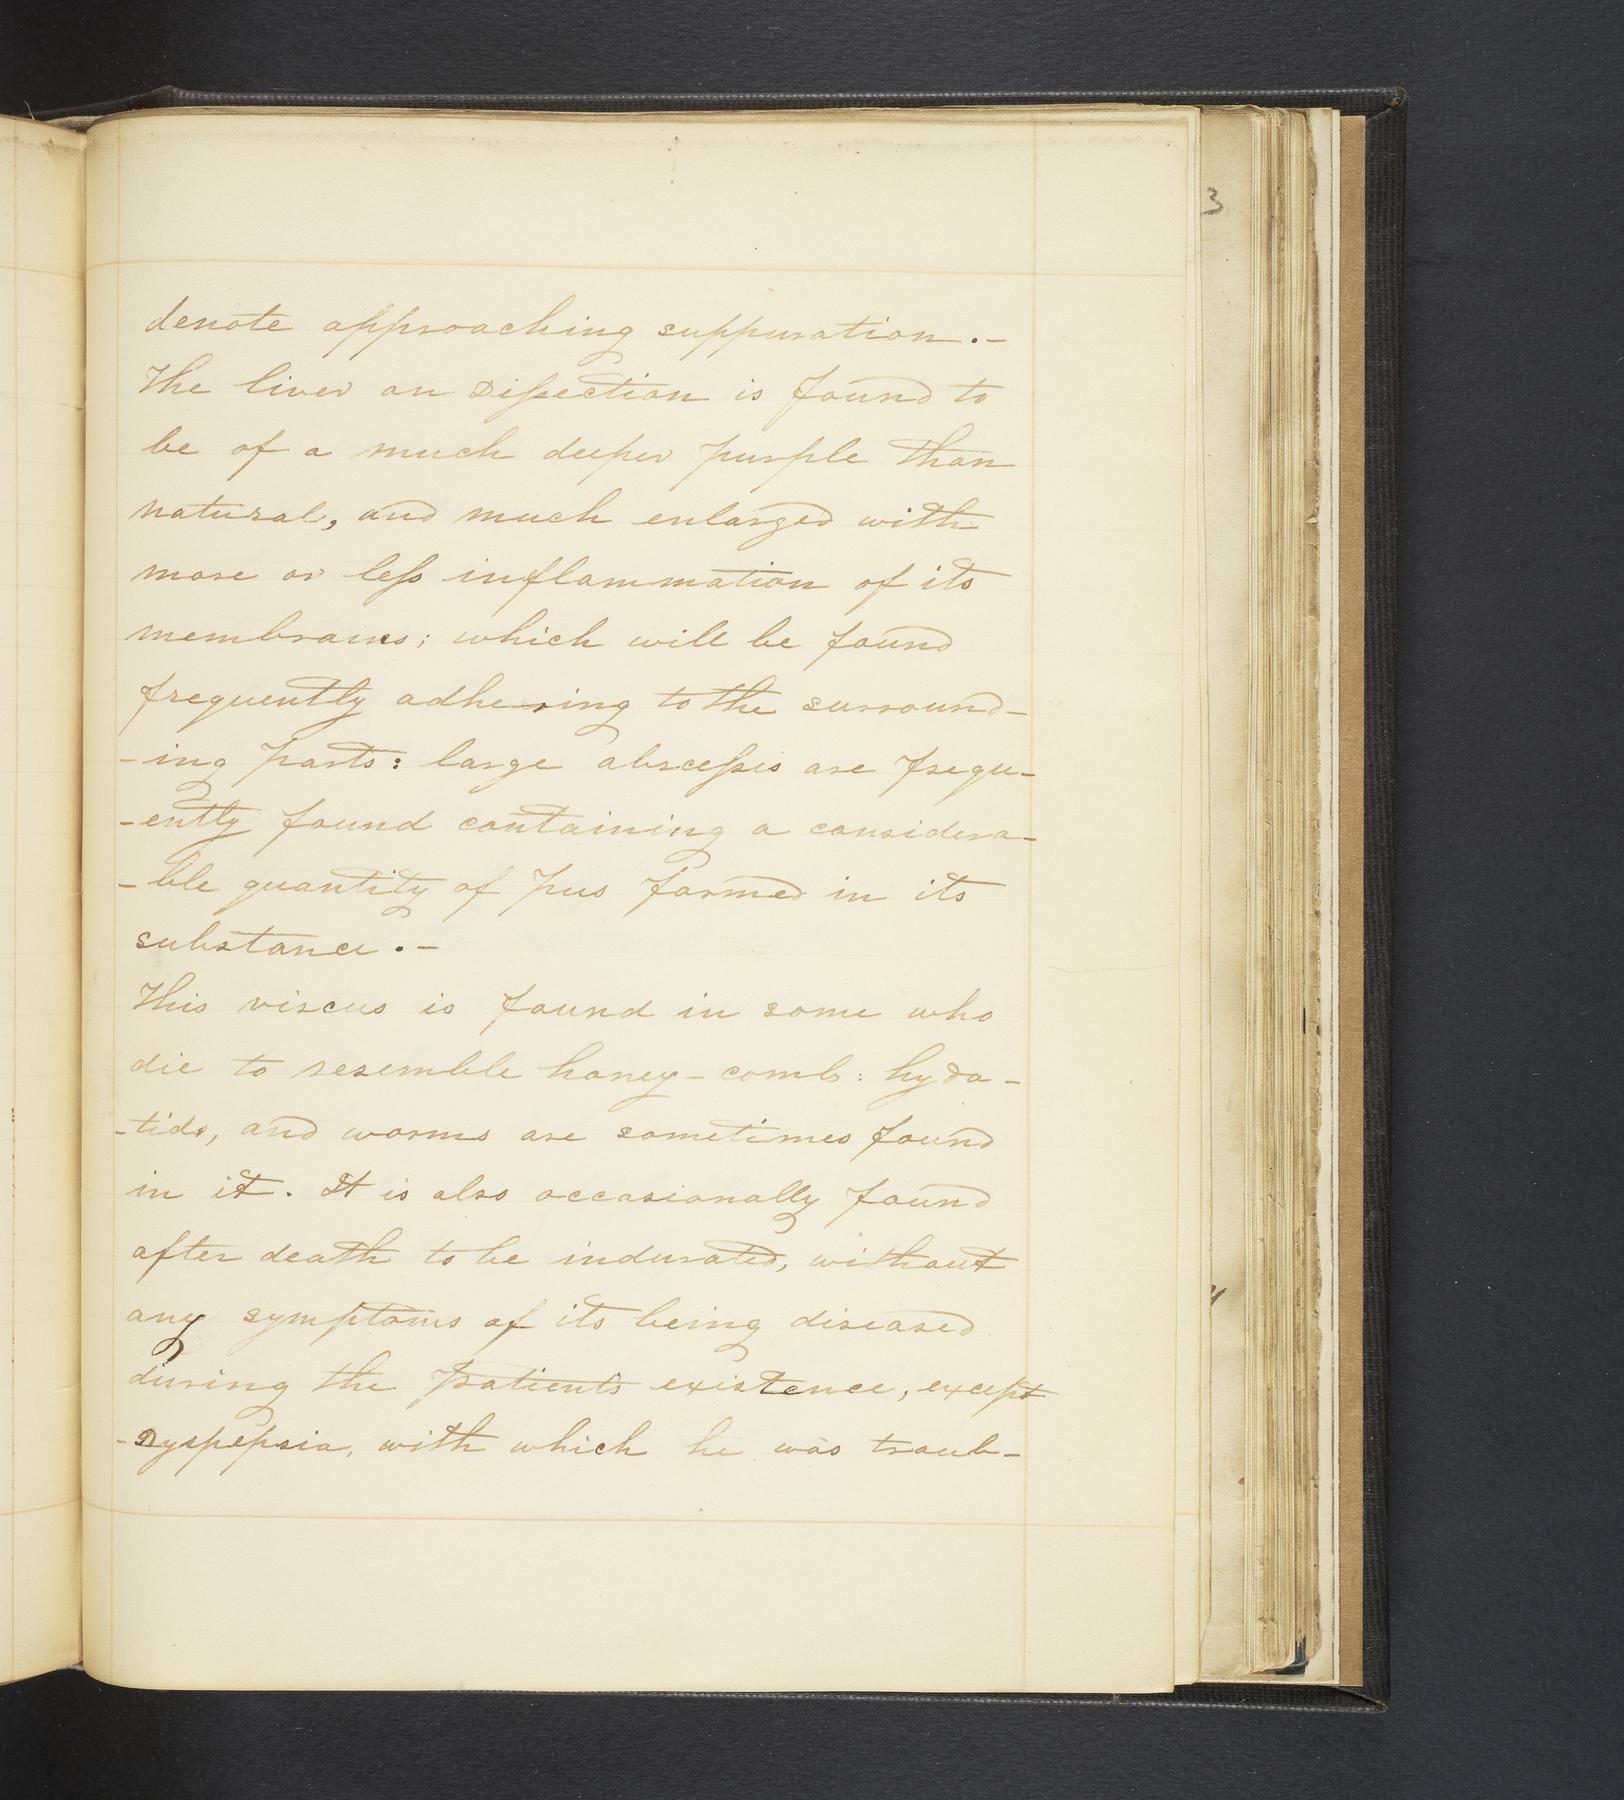 denote approaching suppuration.-
The liver on Dissection is found to
be of a much deeper purple than
natural, and much enlarged with
more or less inflammation of its
membranes; which will be found
frequently adhering to the surround-
-ing parts: large abscesses are frequ-
-ently found containing a considera-
-ble quantity of pus formed in its
substance.-
This viscus is found in some who
die to resemble honey-comb: hyda-
-tids, and worms are sometimes found
in it. It is also occasionally found
after death to be indurated, without
any symptoms of its being diseased
during the patients existence, except
-Dyspepsia, with which he was troub-
3